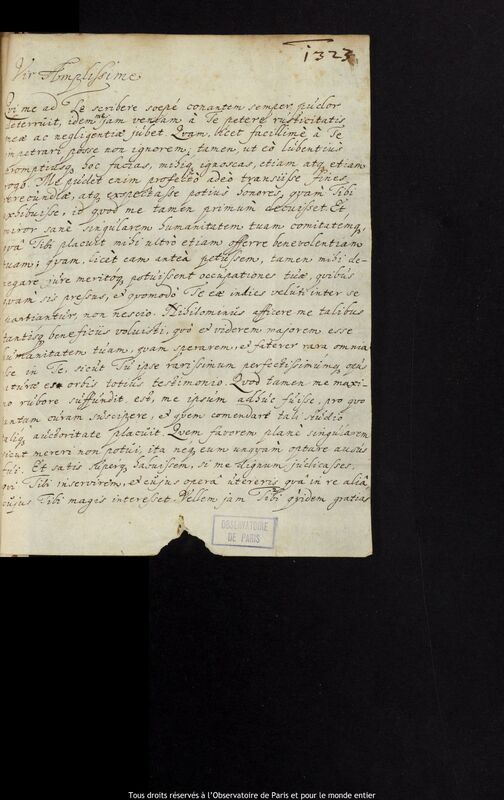 1323
Vir Amplissime
Qui me ad Te scribere soepè conantem semper pudor
deterruit, idem jam veniam à Te petere rusticitatis
meæ ac negligentiæ jubet. Quam, licet facillimè à Te
impetrari posse non ignorem; tamen, ut eò lubentius
promptiusq hoc facias, mihiq ignoscas, etiam atq etiam
rogo. Me pudet enim profectò adeò transiisse fines
verecundiæ, atq expectasse potius honores, quam Tibi
exhibuisse, id quod me tamen primùm decuisset. Et
miror sanè singularem humanitatem tuam comitatemq,
quâ Tibi placuit mihi ultrò etiam offerre benevolentiam
tuam; quam, licet eam anteà petiissem, tamen mihi de-
negare jure meritoq potuissent occupationes tuæ, quibus
quam sis pressus, et quomodò Te eæ indies veluti inter se
partiantur, non nescio. Nihilominus afficere me talibus
tantisq beneficiis voluisti, quò et viderem majorem esse
humanitatem tuam, quam sperarem, et faterer rara omnia
esse in Te, sicut Tu ipse rarissimum perfectissimumq opus
naturæ es orbis totius testimonio. Quod tamen me maxi-
mo rubore suffundit, est, me ipsum adhuc fuisse, pro quo
tantam curam suscipere, et quem comendare tali studio
taliq auctoritate placuit. Quem favorem planè singularem
sicut mereri non potui, ita neq eum unquam optare ausus
fui. Et satis superq habuissem, si me dignum judicasses,
qui Tibi inservirem, et cujus operâ utereris quâ in re aliâ,
cujus Tibi magis interesset. Vellem jam Tibi quidem gratias
OBSERVATOIRE
DE PARIS
Tous droits réservés à l'Observatoire de Paris et pour le monde entier